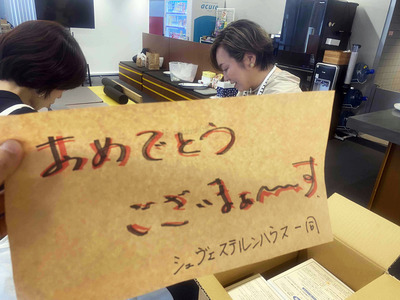 acure
あめでとう
ございまぁ〜〜す。
シュヴェステルンハウス一同